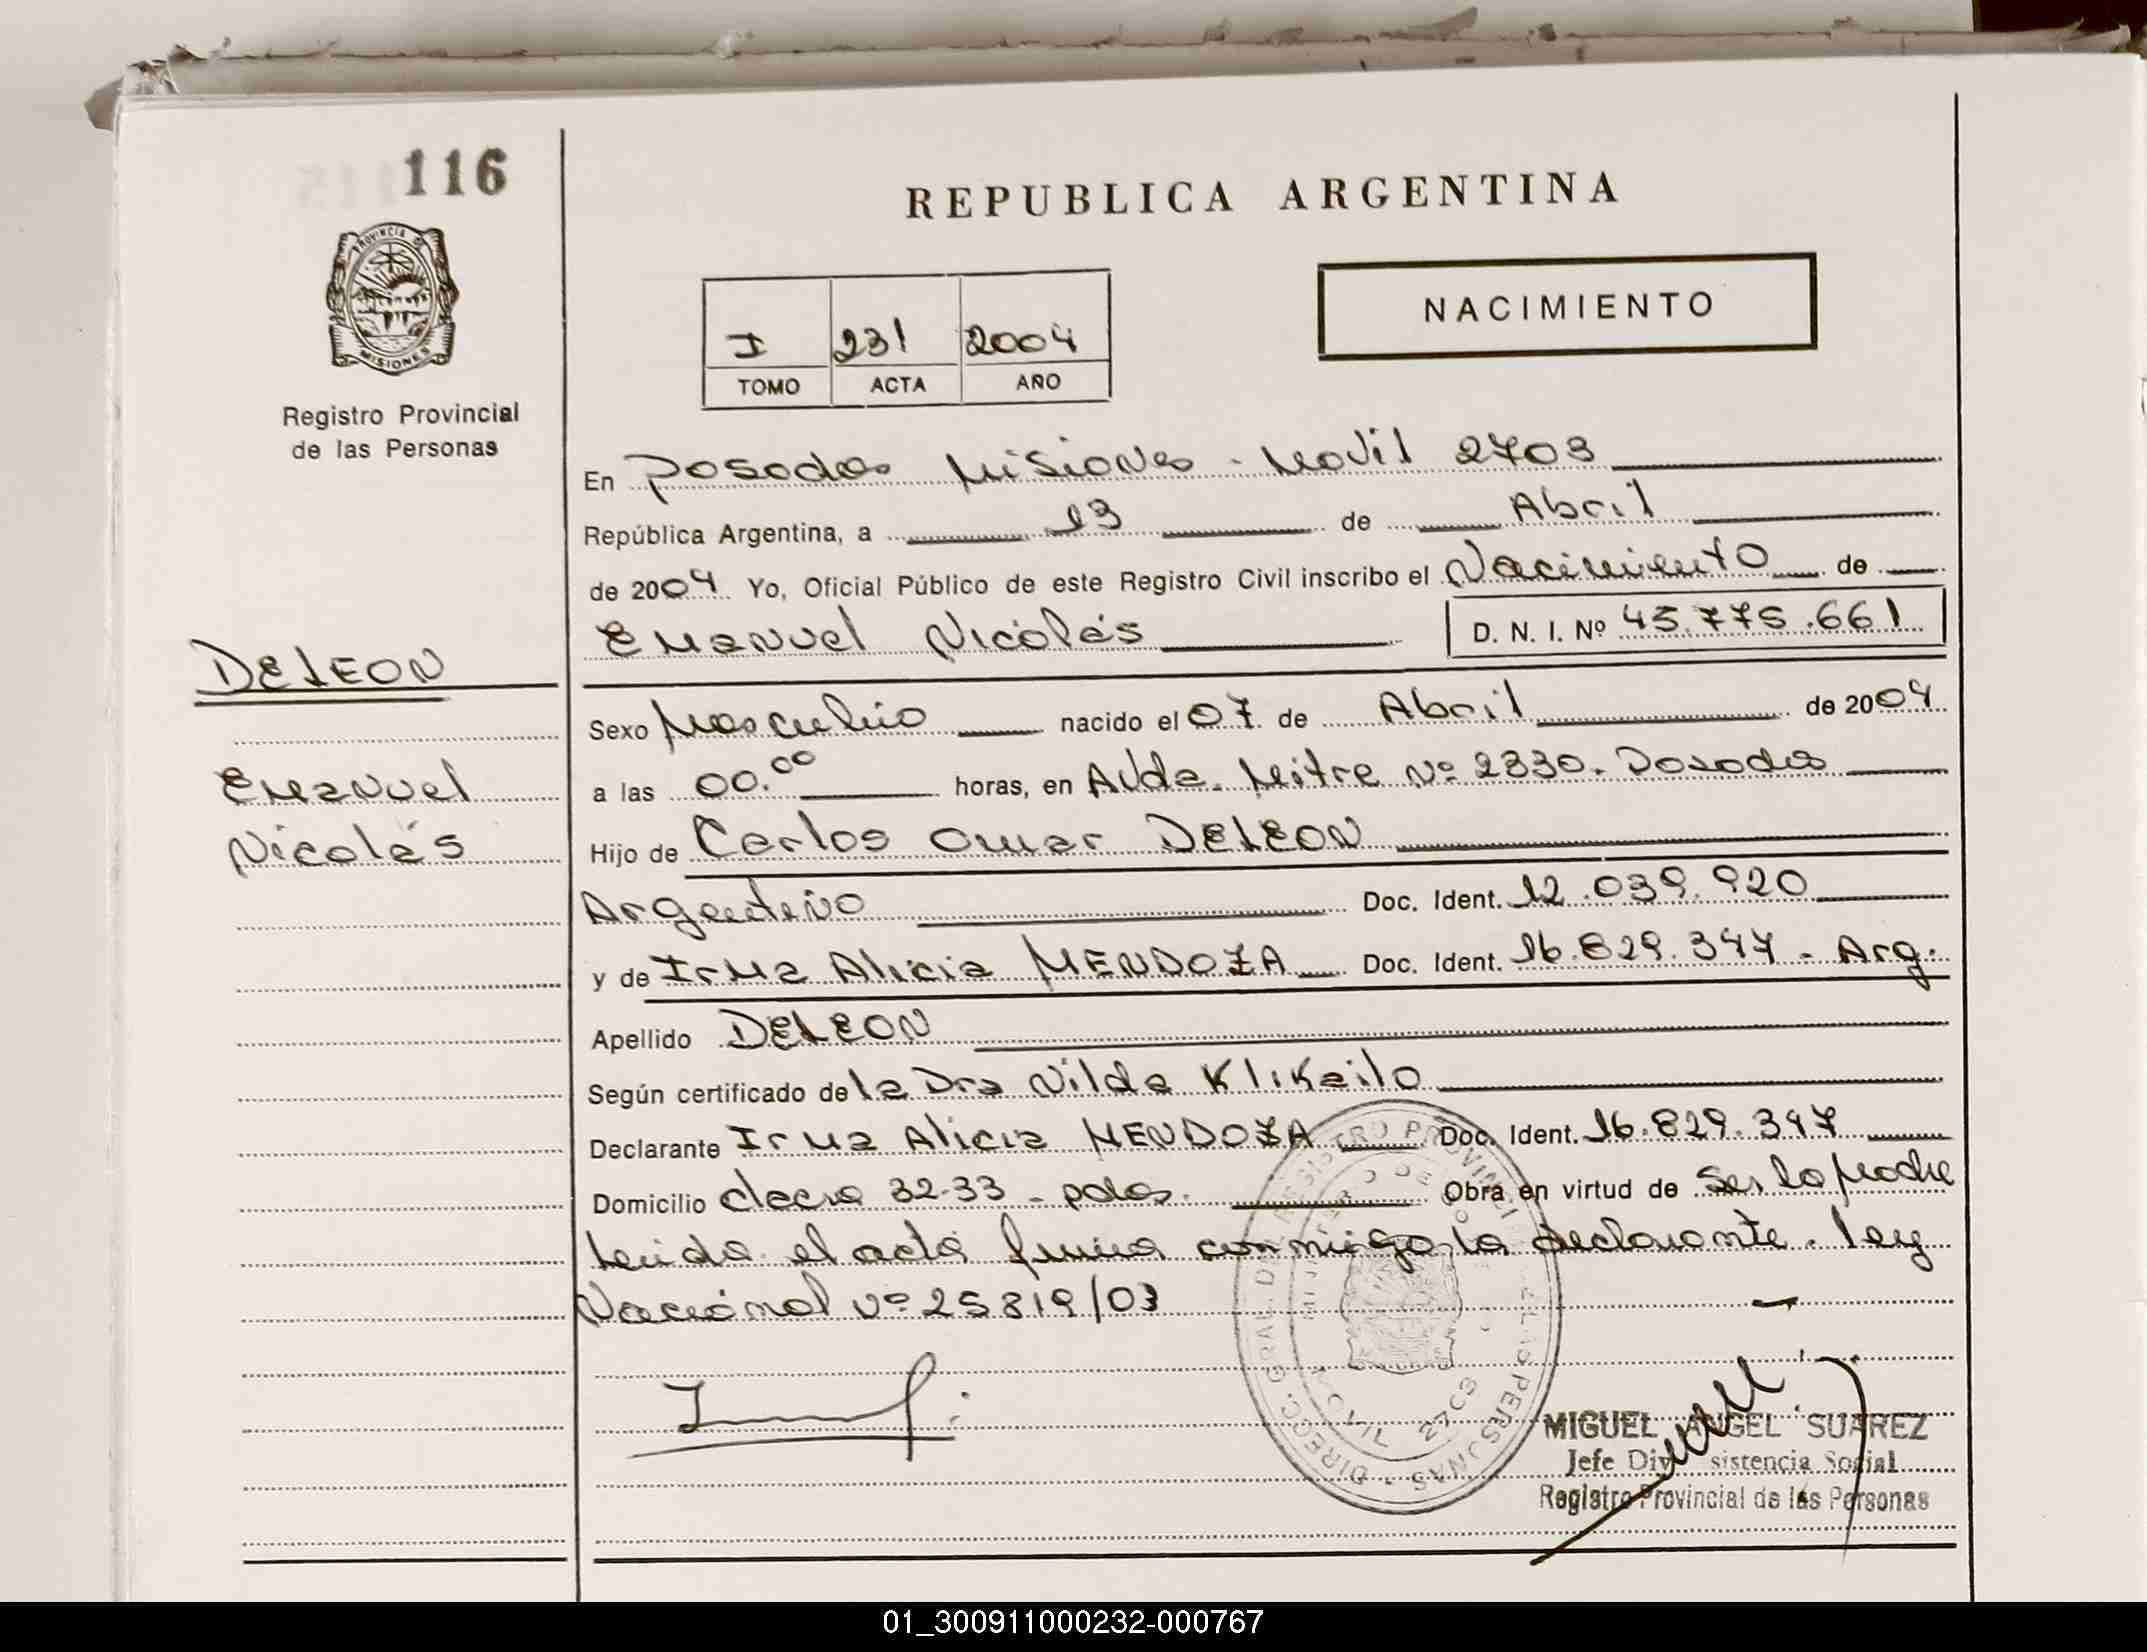 116
REPUBLICA ARGENTINA
PROVINCIA DE
MISIONES
Registro Provincial
de las Personas
I 231 2004
TOMO ACTA AÑO
NACIMIENTO
En Posadas Misiones - Movil 2703
República Argentina, a 13 de Abril
de 2004 Yo, Oficial Público de este Registro Civil inscribo el Nacimiento de
Emanuel Nicolás D. N. I. Nº 45.775.661
DELEON
Emanuel
Nicolás
Sexo Masculino nacido el 07 de Abril de 2004
a las 00.00 horas, en Avda. Mitre Nº 2330. Posadas
Hijo de Carlos Omar DELEON
Argentino Doc. Ident. 12.039.920
y de Irma Alicia MENDOZA Doc. Ident. 16.829.347 - Arg.
Apellido DELEON
Según certificado de la Dra Nilda Klikailo
Declarante Irma Alicia MENDOZA Doc. Ident. 16.829.347
Domicilio chacra 32-33 - pdas. Obra en virtud de Ser la Madre
Leida el acta firma conmigo la declarante. ley
Nacional Nº 25819/03
DIRECC. GRAL. DE REGISTRO PROVINCIAL DE LAS PERSONAS
MOVIL 2703
MIGUEL ANGEL SUAREZ
Jefe Div. sistencia Social
Registro Provincial de las Personas
01_300911000232-000767